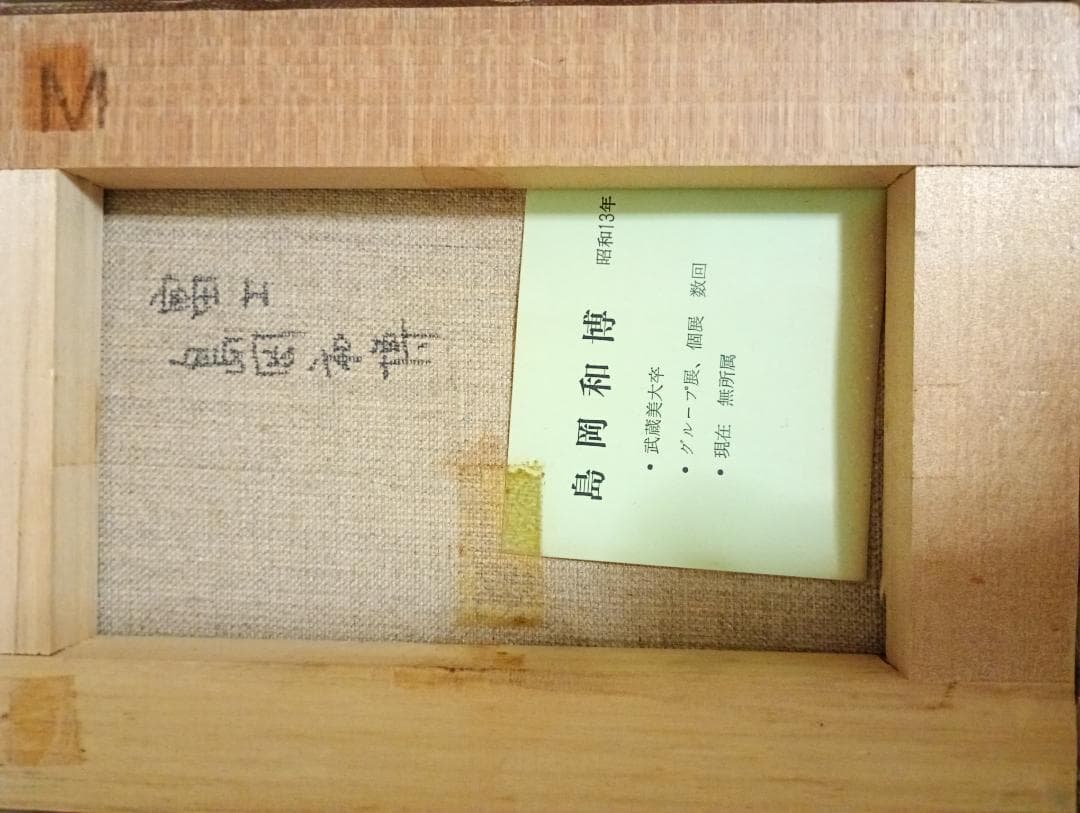 M
富士
島岡和博
島岡和博 昭和13年
• 武蔵美大卒
• グループ展、個展 数回
• 現在 無所属